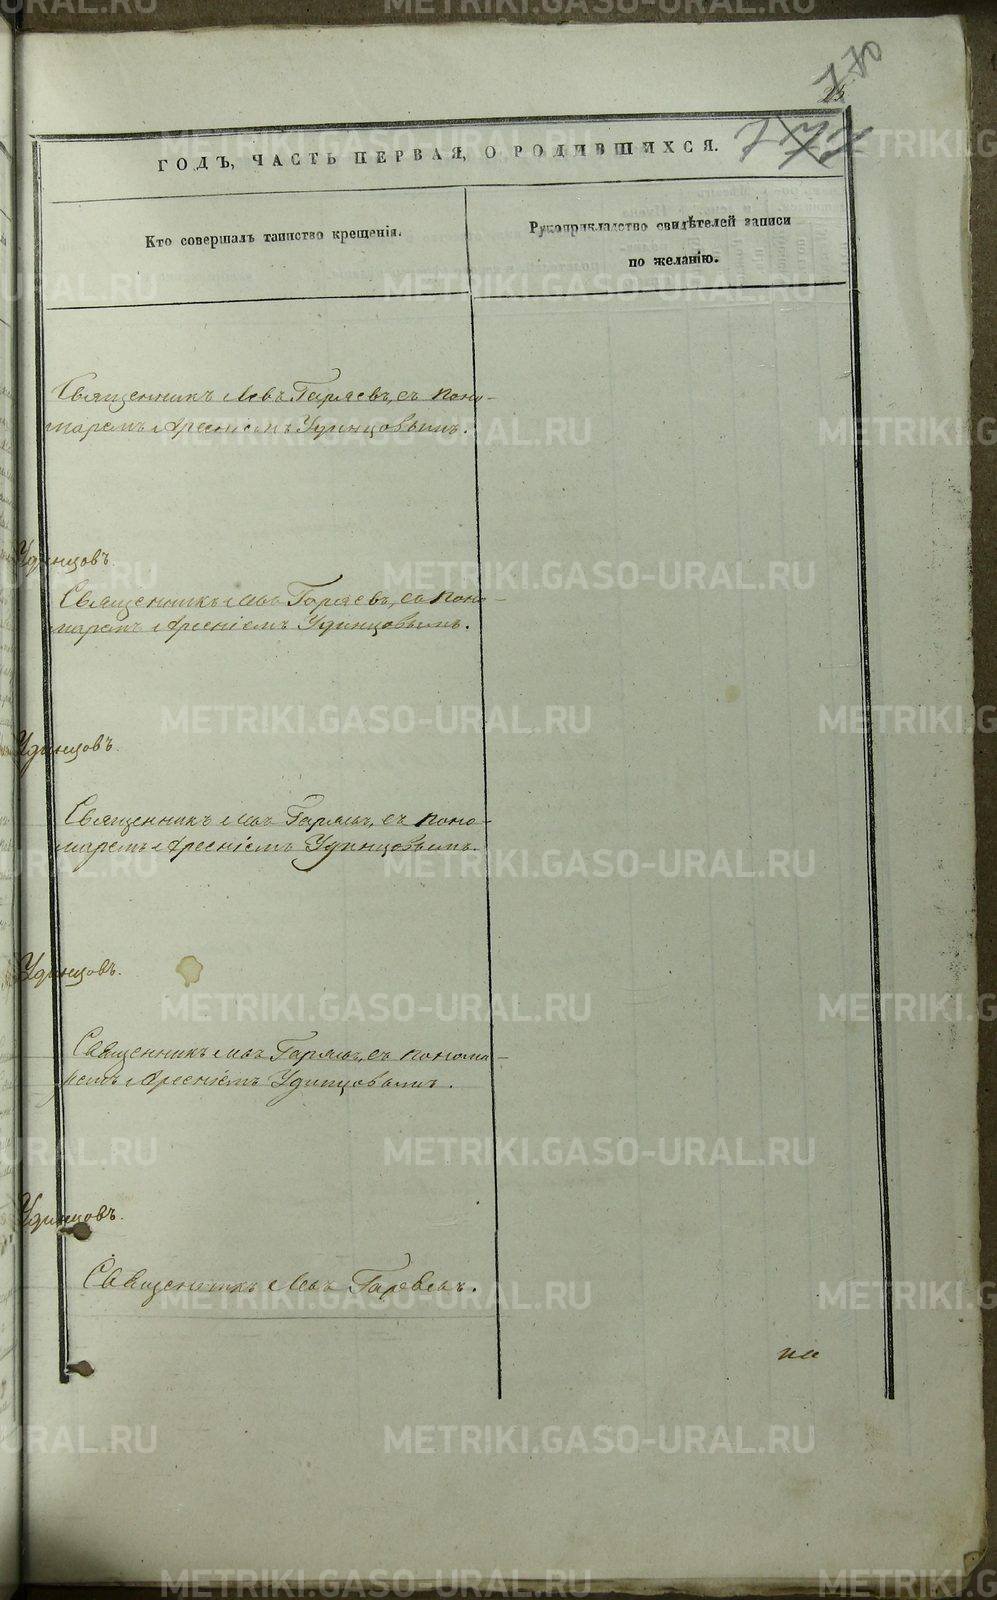 770
25
ГОДЪ, ЧАСТЬ ПЕРВАЯ, О РОДИВШИХСЯ.
Кто совершалъ таинство крещенія.
Рукоприкладство свидѣтелей записи
по желанію.
Священникъ Левъ Гаряевъ, съ поно-
маремъ Арсеніемъ Удинцовымъ.
Удинцовъ.
Священникъ Левъ Гаряевъ, съ поно-
маремъ Арсеніемъ Удинцовымъ.
Удинцовъ.
Священникъ Левъ Гаряевъ, съ поно-
маремъ Арсеніемъ Удинцовымъ.
Удинцовъ.
Священникъ Левъ Гаряевъ, съ понома-
ремъ Арсеніемъ Удинцовымъ.
Удинцовъ.
Священникъ Левъ Гаряевъ.
METRIKI.GASO-URAL.RU